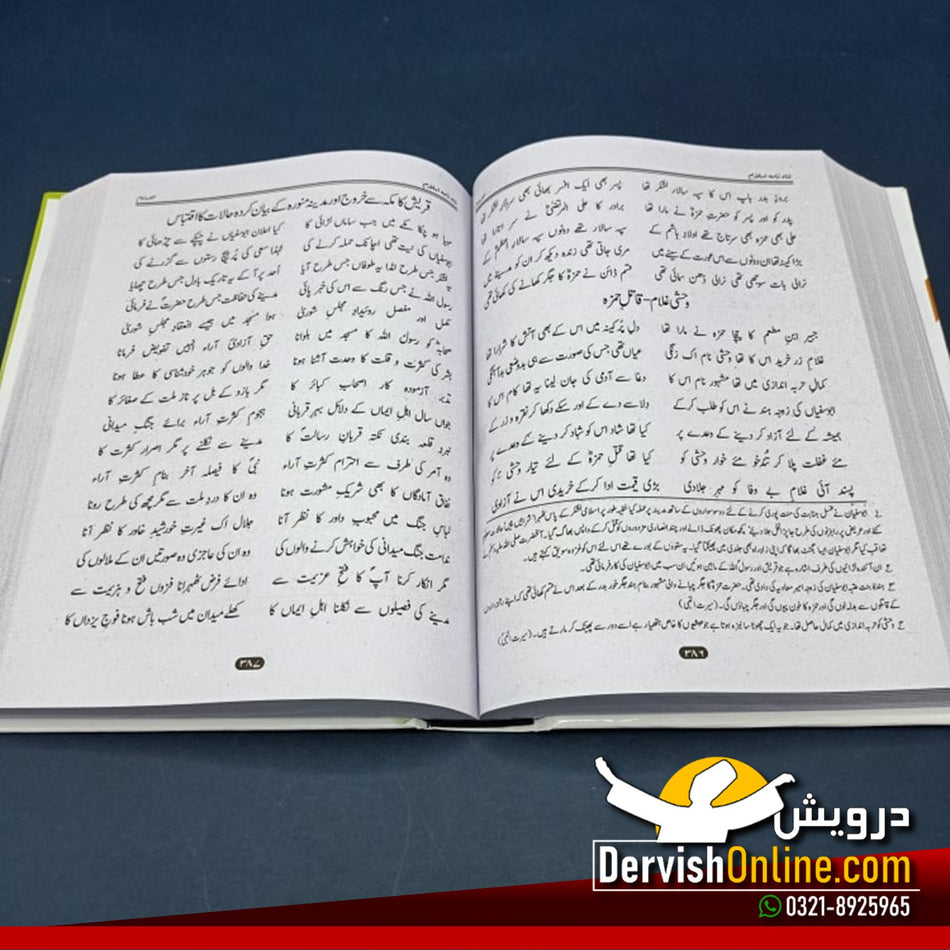 شاہ نامہ اسلام
بروز بدر باپ اس کا سپہ سالار لشکر تھا پسر بھی ایک افسر بھائی بھی سردار لشکر تھا
پدر کو اور پسر کو حضرت حمزہؓ نے مارا تھا برادر کا علی المرتضیٰؓ نے سر اتارا تھا
علی بھی حمزہ بھی سرتاج تھے اولاد ہاشم کے سپہ سالار تھے دونوں سپہ سالار اعظمؐ کے
بڑا کینہ تھا ان دونوں سے اس عورت کے سینے میں مری جاتی تھی زندہ دیکھ کر ان کو مدینے میں
نرالی بات سوجھی تھی نرالی دھن سمائی تھی قسم ڈائن نے حمزہؓ کا جگر کھانے کی کھائی تھی
وحشی غلام - قاتلِ حمزہ
جبیر ابنِ مطعم کا چچا حمزہ نے مارا تھا دل پُر کینہ میں اس کے بھی آتش کا شرارا تھا
غلام زر خرید اس کا تھا وحشی نام اک زنگی عیاں تھی جس کی صورت سے ہی بدوضعی بدآہنگی
کمالِ حربہ اندازی میں تھا مشہور نام اس کا دغا سے آدمی کی جان لینا یہ تھا کام اس کا
ابوسفیاں کی زوجہ ہند نے اس کو طلب کر کے دلاسے دے کے اور سکے دکھا کر نقرہ و زر کے
ہمیشہ کے لئے آزاد کر دینے کے وعدے پر کیا تھا شاد اس کو شاد کر دینے کے وعدے پر
مئے غفلت پلا کر تُندخو مئے خوار وحشی کو کیا تھا قتلِ حمزہؓ کے لئے تیار وحشی کو
پسند آئی غلامِ بے وفا کو مہرِ جلادی بڑی قیمت ادا کر کے خریدی اس نے آزادی
۳۸۶
شاہ نامہ اسلام
قریش کا مکہ سے خروج اور مدینہ منورہ کے بیان کردہ حالات کا اقتباس
مہیا ہو چکا مکے میں جب ساماں لڑائی کا کیا اعلان ابوسفیاں نے چپکے سے چڑھائی کا
ابوسفیاں کی نیت تھی اچانک حملہ کرنے کی لہٰذا سعی کی پُرپیچ رستوں سے گزرنے کی
یہ لشکر جس طرح اٹھا یہ طوفاں جس طرح آیا اُحد پر آ کے یہ تاریک بادل جس طرح چھایا
رسول اللہ نے جس رنگ سے اس کی خبر پائی مدینے کی حفاظت جس طرح حضرتؐ نے فرمائی
مکمل اور مفصل روئیدادِ مجلسِ شوریٰ ہوا مسجد میں جیسے انعقادِ مجلسِ شوریٰ
صحابہؓ کو رسول اللہ کا مسجد میں بلوانا حقِ آزادیٔ آراء اُنہیں تفویض فرمانا
بشر کی کثرت و قلت کا وحدت آشنا ہونا خدا والوں کو جوہرِ خودشناسی کا عطا ہونا
تدبر آزمودہ کار اصحابِ کبائر کا مگر بازو کے بل پر ناز ملت کے صغائر کا
جواں سال اہلِ ایماں کے دلائل بہرِ قربانی ہجومِ کثرتِ آراء برائے جنگِ میدانی
نبردِ قلعہ بندی نکتہ قربانِ رسالتؐ کا مدینے سے نکلنے پر مگر اصرار کثرت کا
وہ آمر کی طرف سے احترامِ کثرتِ آراء نبیؐ کا فیصلہ آخر بنامِ کثرتِ آراء
نفاق آمادگاں کا بھی شریکِ مشورت ہونا وہ ان کا دردِ ملت سے مگرمچھ کی طرح رونا
لباسِ جنگ میں محبوبِ داور کا نظر آنا جلال اک غیرتِ خورشیدِ خاور کا نظر آنا
ندامت جنگِ میدانی کی خواہش کرنے والوں کی وہ ان کی عاجزی وہ صورتیں ان کے ملالوں کی
مگر انکار کرنا آپؐ کا فسخِ عزیمت سے ادائے فرض ٹھہرانا فزوں فتح و ہزیمت سے
مدینے کی فصیلوں سے نکلنا اہلِ ایماں کا کھلے میدان میں شب باش ہونا فوجِ یزداں کا
۳۸۷
درویش
DervishOnline.com
0321-8925965